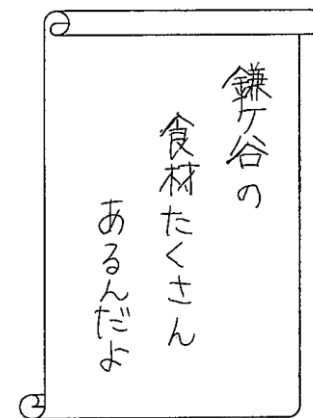 鎌ケ谷の
食材たくさん
あるんだよ